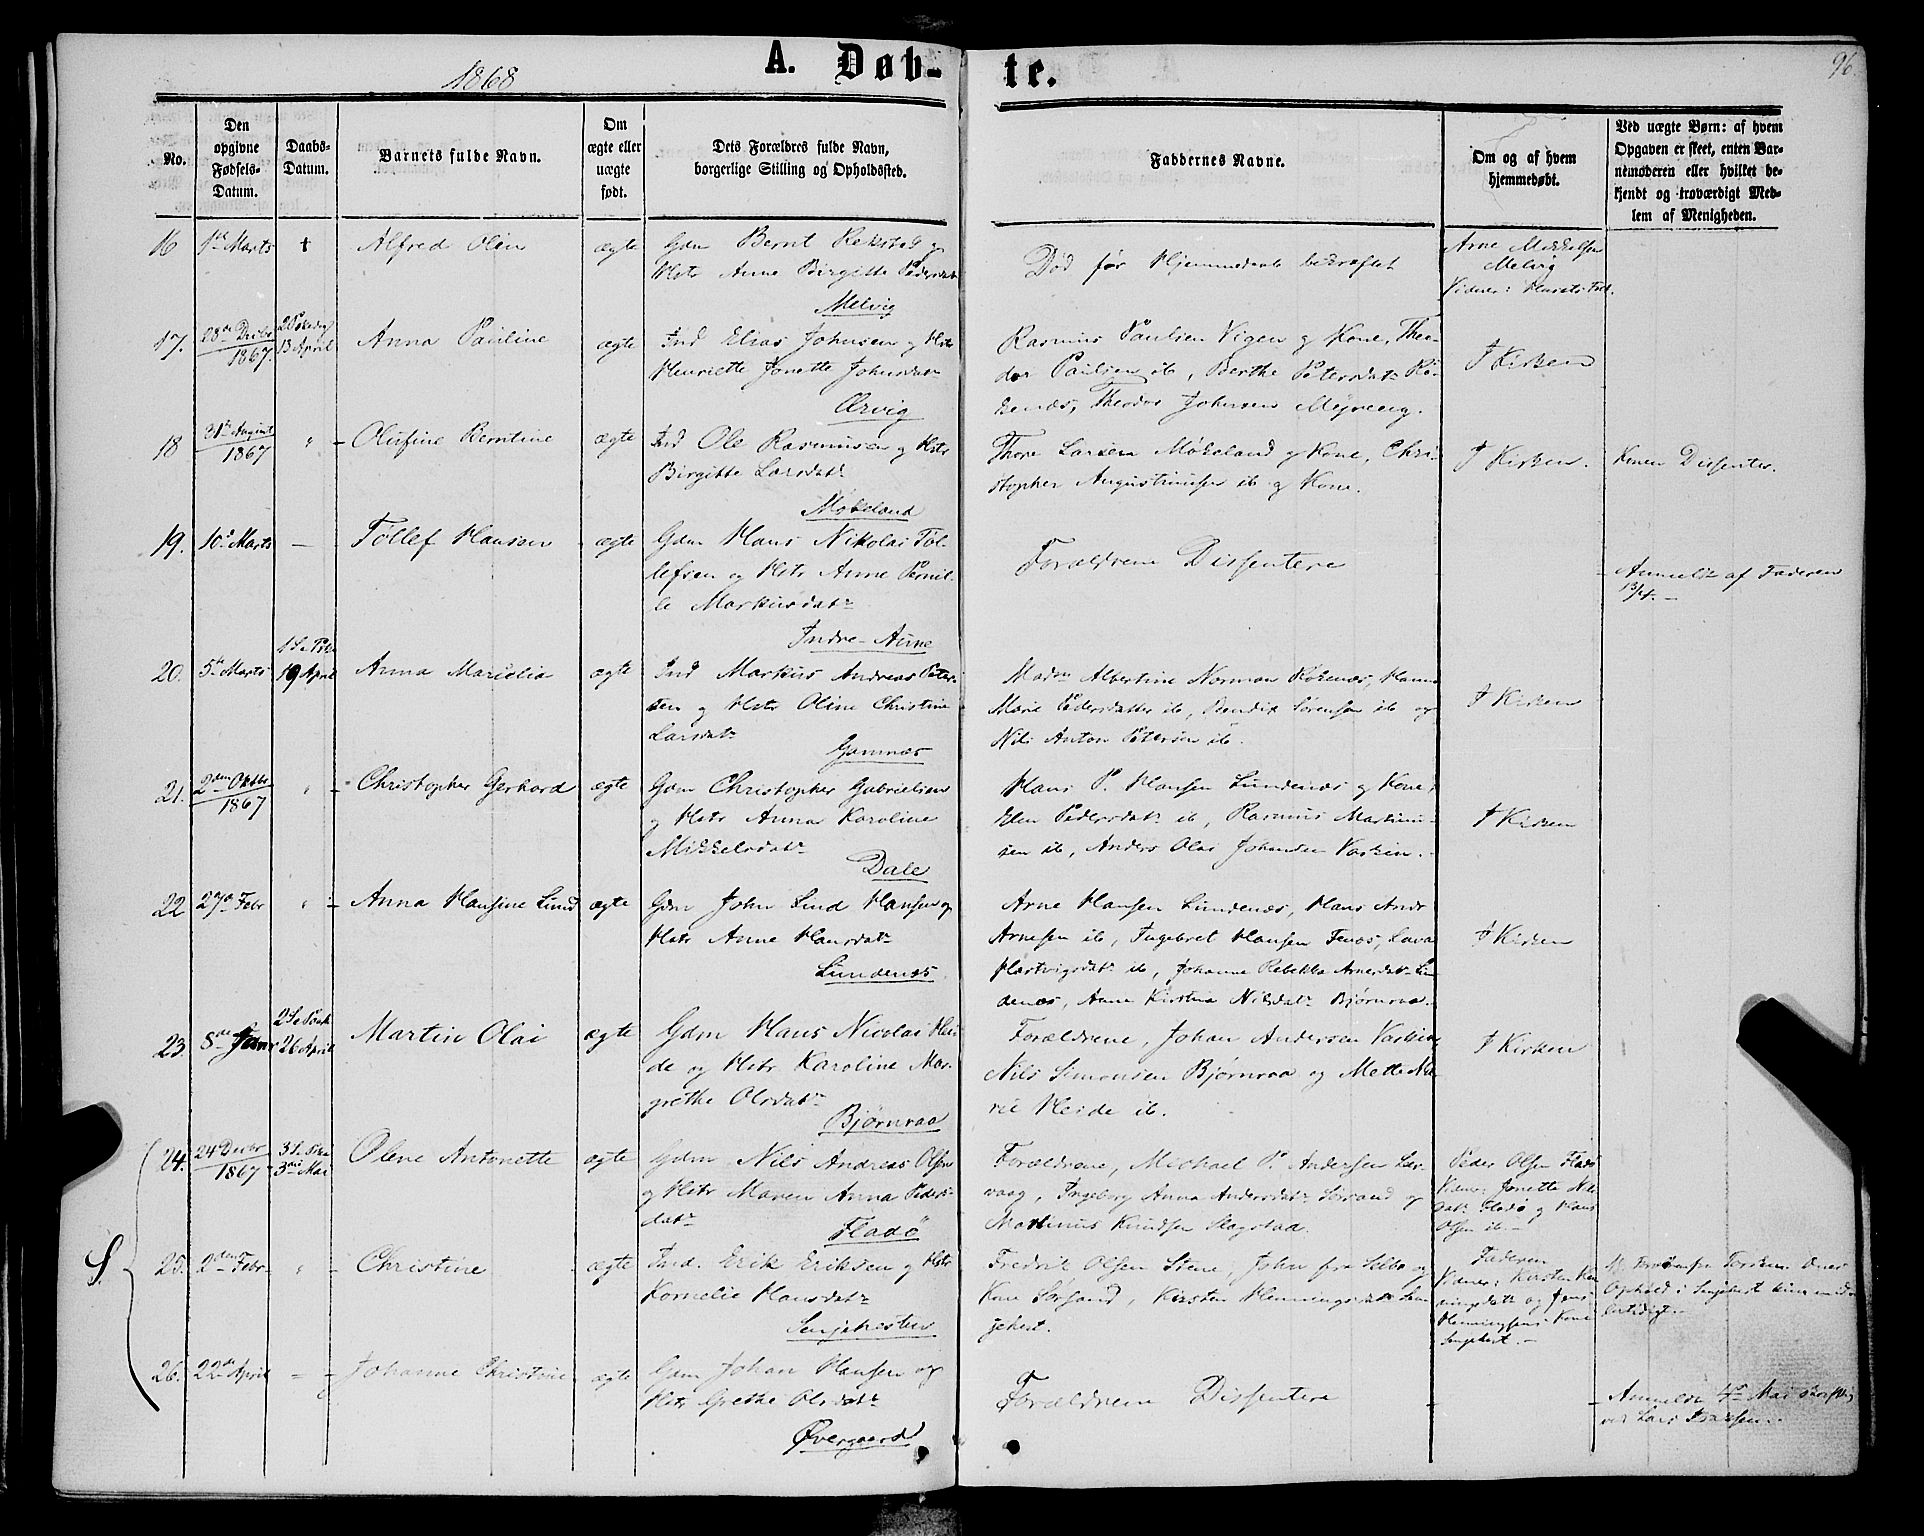 1868
A. Døb-te.
96
No.
Den opgivne Fødsels-Datum.
Daabs-Datum.
Barnets fulde Navn.
Om ægte eller uægte født.
Dets Forældres fulde Navn, borgerlige Stilling og Opholdssted.
Faddernes Navne.
Om og af hvem hjemmedøbt.
Ved uægte Børn: af hvem Opgaven er skeet, enten Barnemoderen eller hvilket bekjendt og troværdigt Medlem af Menigheden.
16 1ste Marts † Alfred Olein ægte Gdm Bernt Rekstad og
Hstr Anne Birgitte Pedersdatr
Melvig
Død før Hjemmedaab bekræftet
Arne Mikkelsen
Melvig
Vidner: Husets Folk
17. 28de Decbr 1867. 13 April Anna Pauline ægte Ind Elias Johnsen og Hstr
Henriette Jonette Johnsdatr
Ervig
Rasmus Paulsen Vigen og Kone, Theo-
dor Paulsen ib, Berthe Petersdatr Rø-
kenæs, Theodor Johnsen Myreng.
I Kirken
18 31te August 1867 " - Olufine Berntine ægte Ind Ole Rasmussen og Hstr
Birgitte Larsdatr
Møkeland
Thore Larsen Møkeland og Kone, Chri-
stopher Augustinusen ib og Kone.
I Kirken. Konen Dissenter.
19. 10de Marts - Tøllef Hansen ægte Gdm Hans Nikolai Tøl-
lefsen og Hstr Anne Pernil-
le Markusdatr
Indre-Aune
Forældrene Dissentere
Anmeldt af Faderen
13/4. -
20. 5te Marts 19 April Anna Marselia ægte Ind Markus Andreas Peter-
sen og Hstr Oline Christine
Larsdatr
Gamnæs
Madm Albertine Normann Røkenæs, Hanna
Marie Pedersdatter ib, Bendix Sørensen ib og
Nils Anton Petersen ib.
I Kirken
21. 2den Oktbr 1867 " - Christopher Gerhard ægte Gdm Christopher Gabrielsen
og Hstr Anna Karoline
Mikkelsdatr
Dale
Hans P. Hansen Lundenæs og Kone,
Elen Pedersdatr ib, Rasmus Markus-
sen ib, Anders Olai Johansen
I Kirken
22 27de Febr " - Anna Hansine Lund ægte Gdm John Lind Hansen og
Hstr Anne Hansdatr
Lundenæs
Arne Hansen Lundenæs, Hans Andr
Arnesen ib, Ingebret Hansen Fenes,
Hartvigsdatr ib, Johanne Rebekka Arnesdatr Lun-
denæs, Anne Kirstina Nilsdatr Bjørnraa.
I Kirken
23. 8de Janr 26 April Martin Olai ægte Gdm Hans Nicolai Hei-
de og Hstr Karoline Mar-
grethe Olsdatr
Bjørnraa
Forældrene, Johan Andersen
Nils Simonsen Bjørnraa og Mette Ma-
rie Heide ib.
I Kirken
S.
24. 24 Decbr 1867 3die Mai Olene Antonette ægte Gdm Nils Andreas Olsen
og Hstr Maren Anna Peders-
datr
Fladø
Forældrene, Michael P. Andersen Ler-
vaag, Ingeborg Anna Andersdatr Sørsand og
Martinus Knudsen Slagstad.
Peder Olsen Fladø
Vidner: Jonette Nils-
datr Fladø og Hans
Olsen ib.
25. 2den Febr " - Christine ægte Ind. Erik Eriksen og Hstr
Kornelie Hansdatr
Senjehesten
Fredrik Olsen Stene, John fra Selbo og
Kone Sørsand, Kirsten Henningsdatr Sen-
jehest.
Faderen
Vidner: Kirsten Hen-
ningsdatr og Jens
Henningsens Kone
Senjehest. -
Torsken deres
Ophold i Senjehest kun mid-
lertidigt.
26. 22de April Johanne Christine ægte Gdm Johan Hansen og
Hstr Grethe Olsdatr
Øvergaard
Forældrene Dissentere
Anmeldt 4de Mai skriftlig
ved Lars Isaksen.